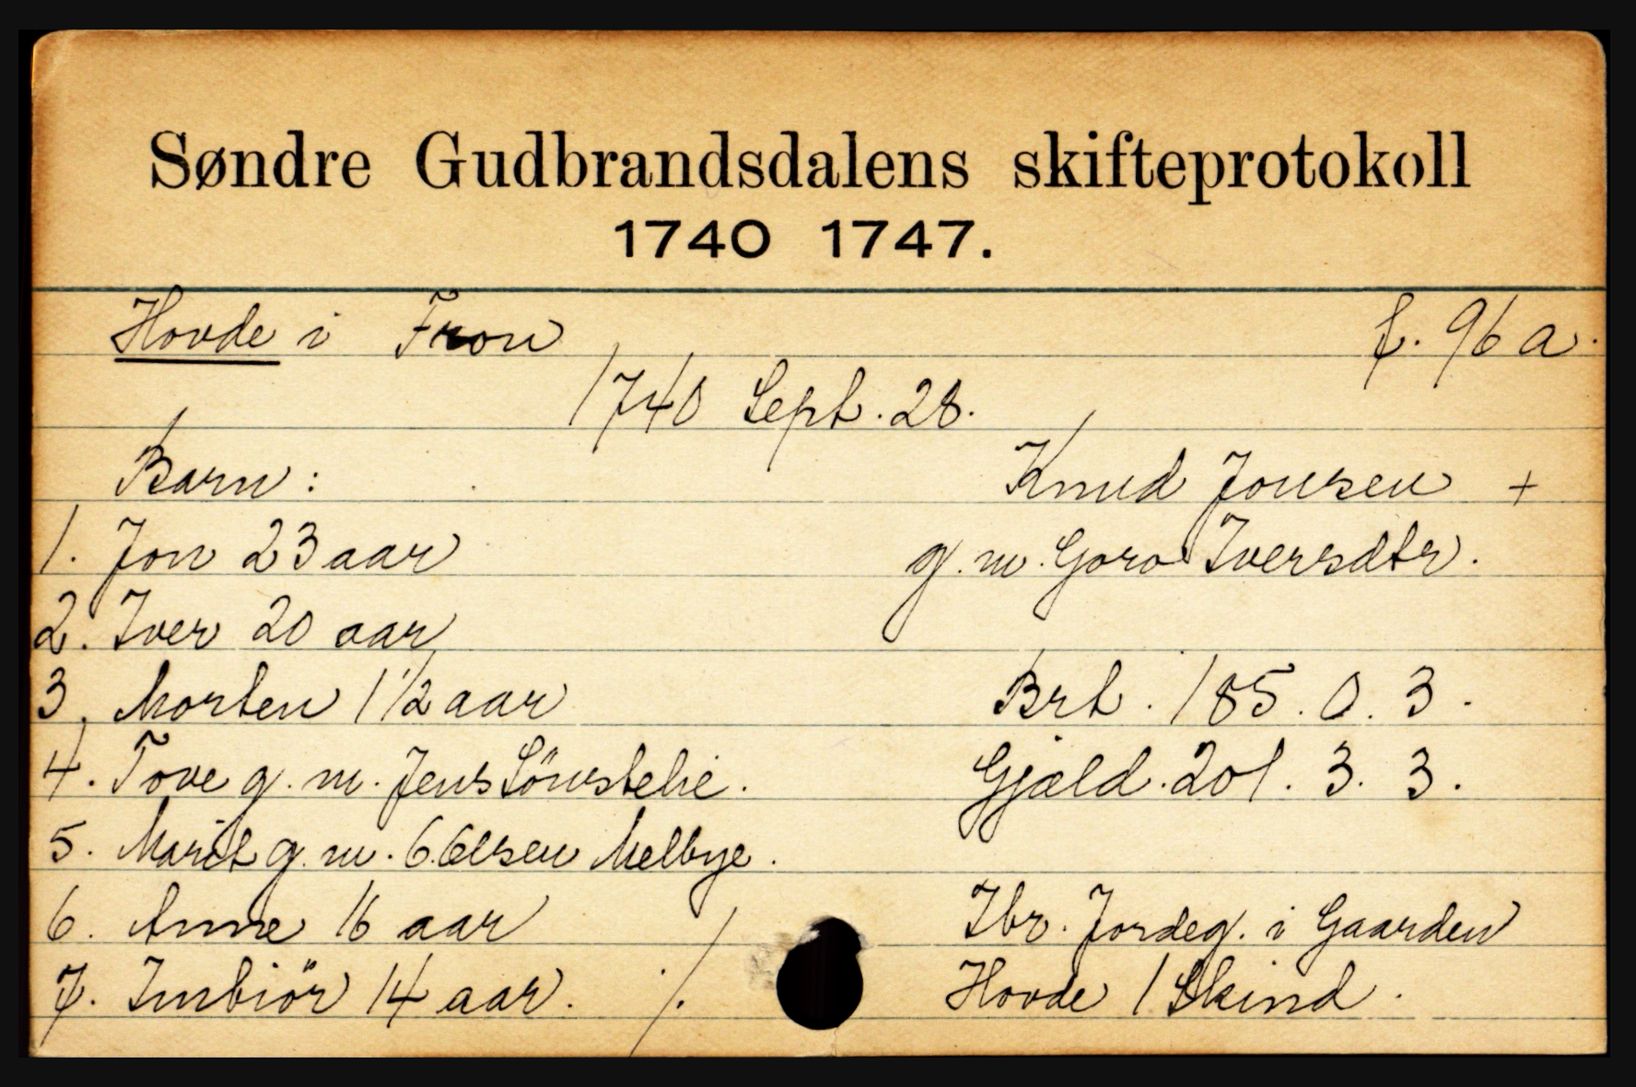 Søndre Gudbrandsdalens skifteprotokoll
1740 1747.
Hovde i Fron f. 96 a.
1740 Sept. 28.
Barn: Knud Jonsen +
1. Jon 23 aar g. m. Goro Iversdtr.
2. Iver 20 aar
3. Morten 1 1/2 aar Brt. 185. 0. 3.
4. Tove g. m. Jens Sönstelie. Gjæld. 201. 3. 3.
5. Marit g. m. Melbye.
6. Anne 16 aar Ibr. Jordeg. i Gaarden
7. Imbiör 14 aar. ·/. Hovde 1 Skind.